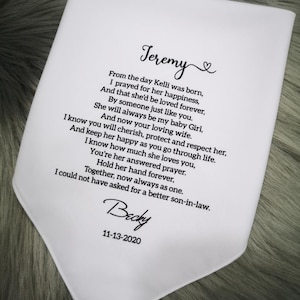 Jeremy
From the day Kelli was born,
I prayed for her happiness,
And that she'd be loved forever,
By someone just like you.
She will always be my baby Girl,
And now your loving wife.
I know you will cherish, protect and respect her,
And keep her happy as you go through life.
I know how much she loves you,
You're her answered prayer.
Hold her hand forever,
Together, now always as one.
I could not have asked for a better son-in-law.
Becky
11-13-2020